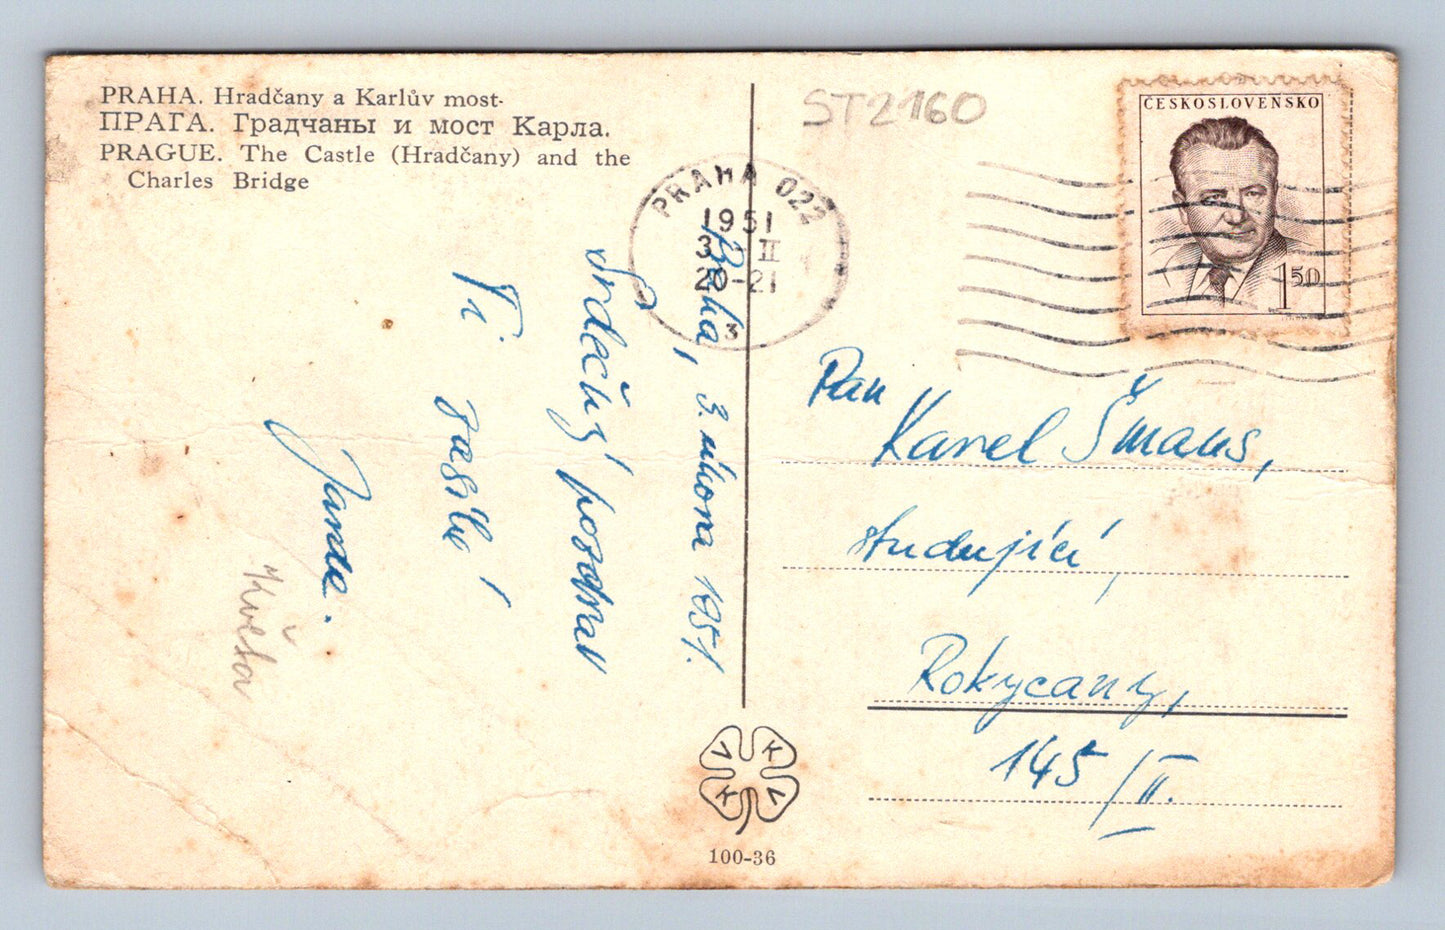 PRAHA. Hradčany a Karlův most.
ПРАГА. Градчаны и мост Карла.
PRAGUE. The Castle (Hradčany) and the
Charles Bridge
ST2160
ČESKOSLOVENSKO
1 50
PRAHA 022
1951
3 II
20-21
3
Praha, 3. února 1951.
Srdečný pozdrav
Ti zasílá
Janda.
Květa
Pan
Karel Šmaus,
studující,
Rokycany,
145/II.
V K V K
100-36